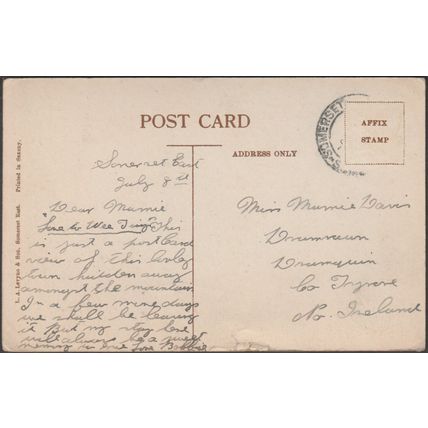 POST CARD
ADDRESS ONLY
AFFIX
STAMP
SOMERSET
Printed in Saxony.
Somerset East.
Somerset East
July 8th
Dear Mamie
Love to Wee This
is just a postcard
view of this lovely
town hidden away
amongst the mountains
In a few more days
we shall be leaving
it But my stay here
will always be a sweet
memory to me Love Bobbie
Miss Mamie Davis
Drumrawn
Drumquin
Co Tyrone
No. Ireland